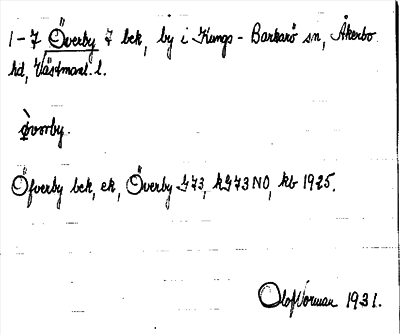 1-7 Överby 7 bek, by i Kungs-Barkarö sn, Åkerbo
hd, Västmanl. l.
ø̀vərby.
Öfverby bek, ek, Överby G73, kG73NO, kb 1925.
Olof Norman 1931.